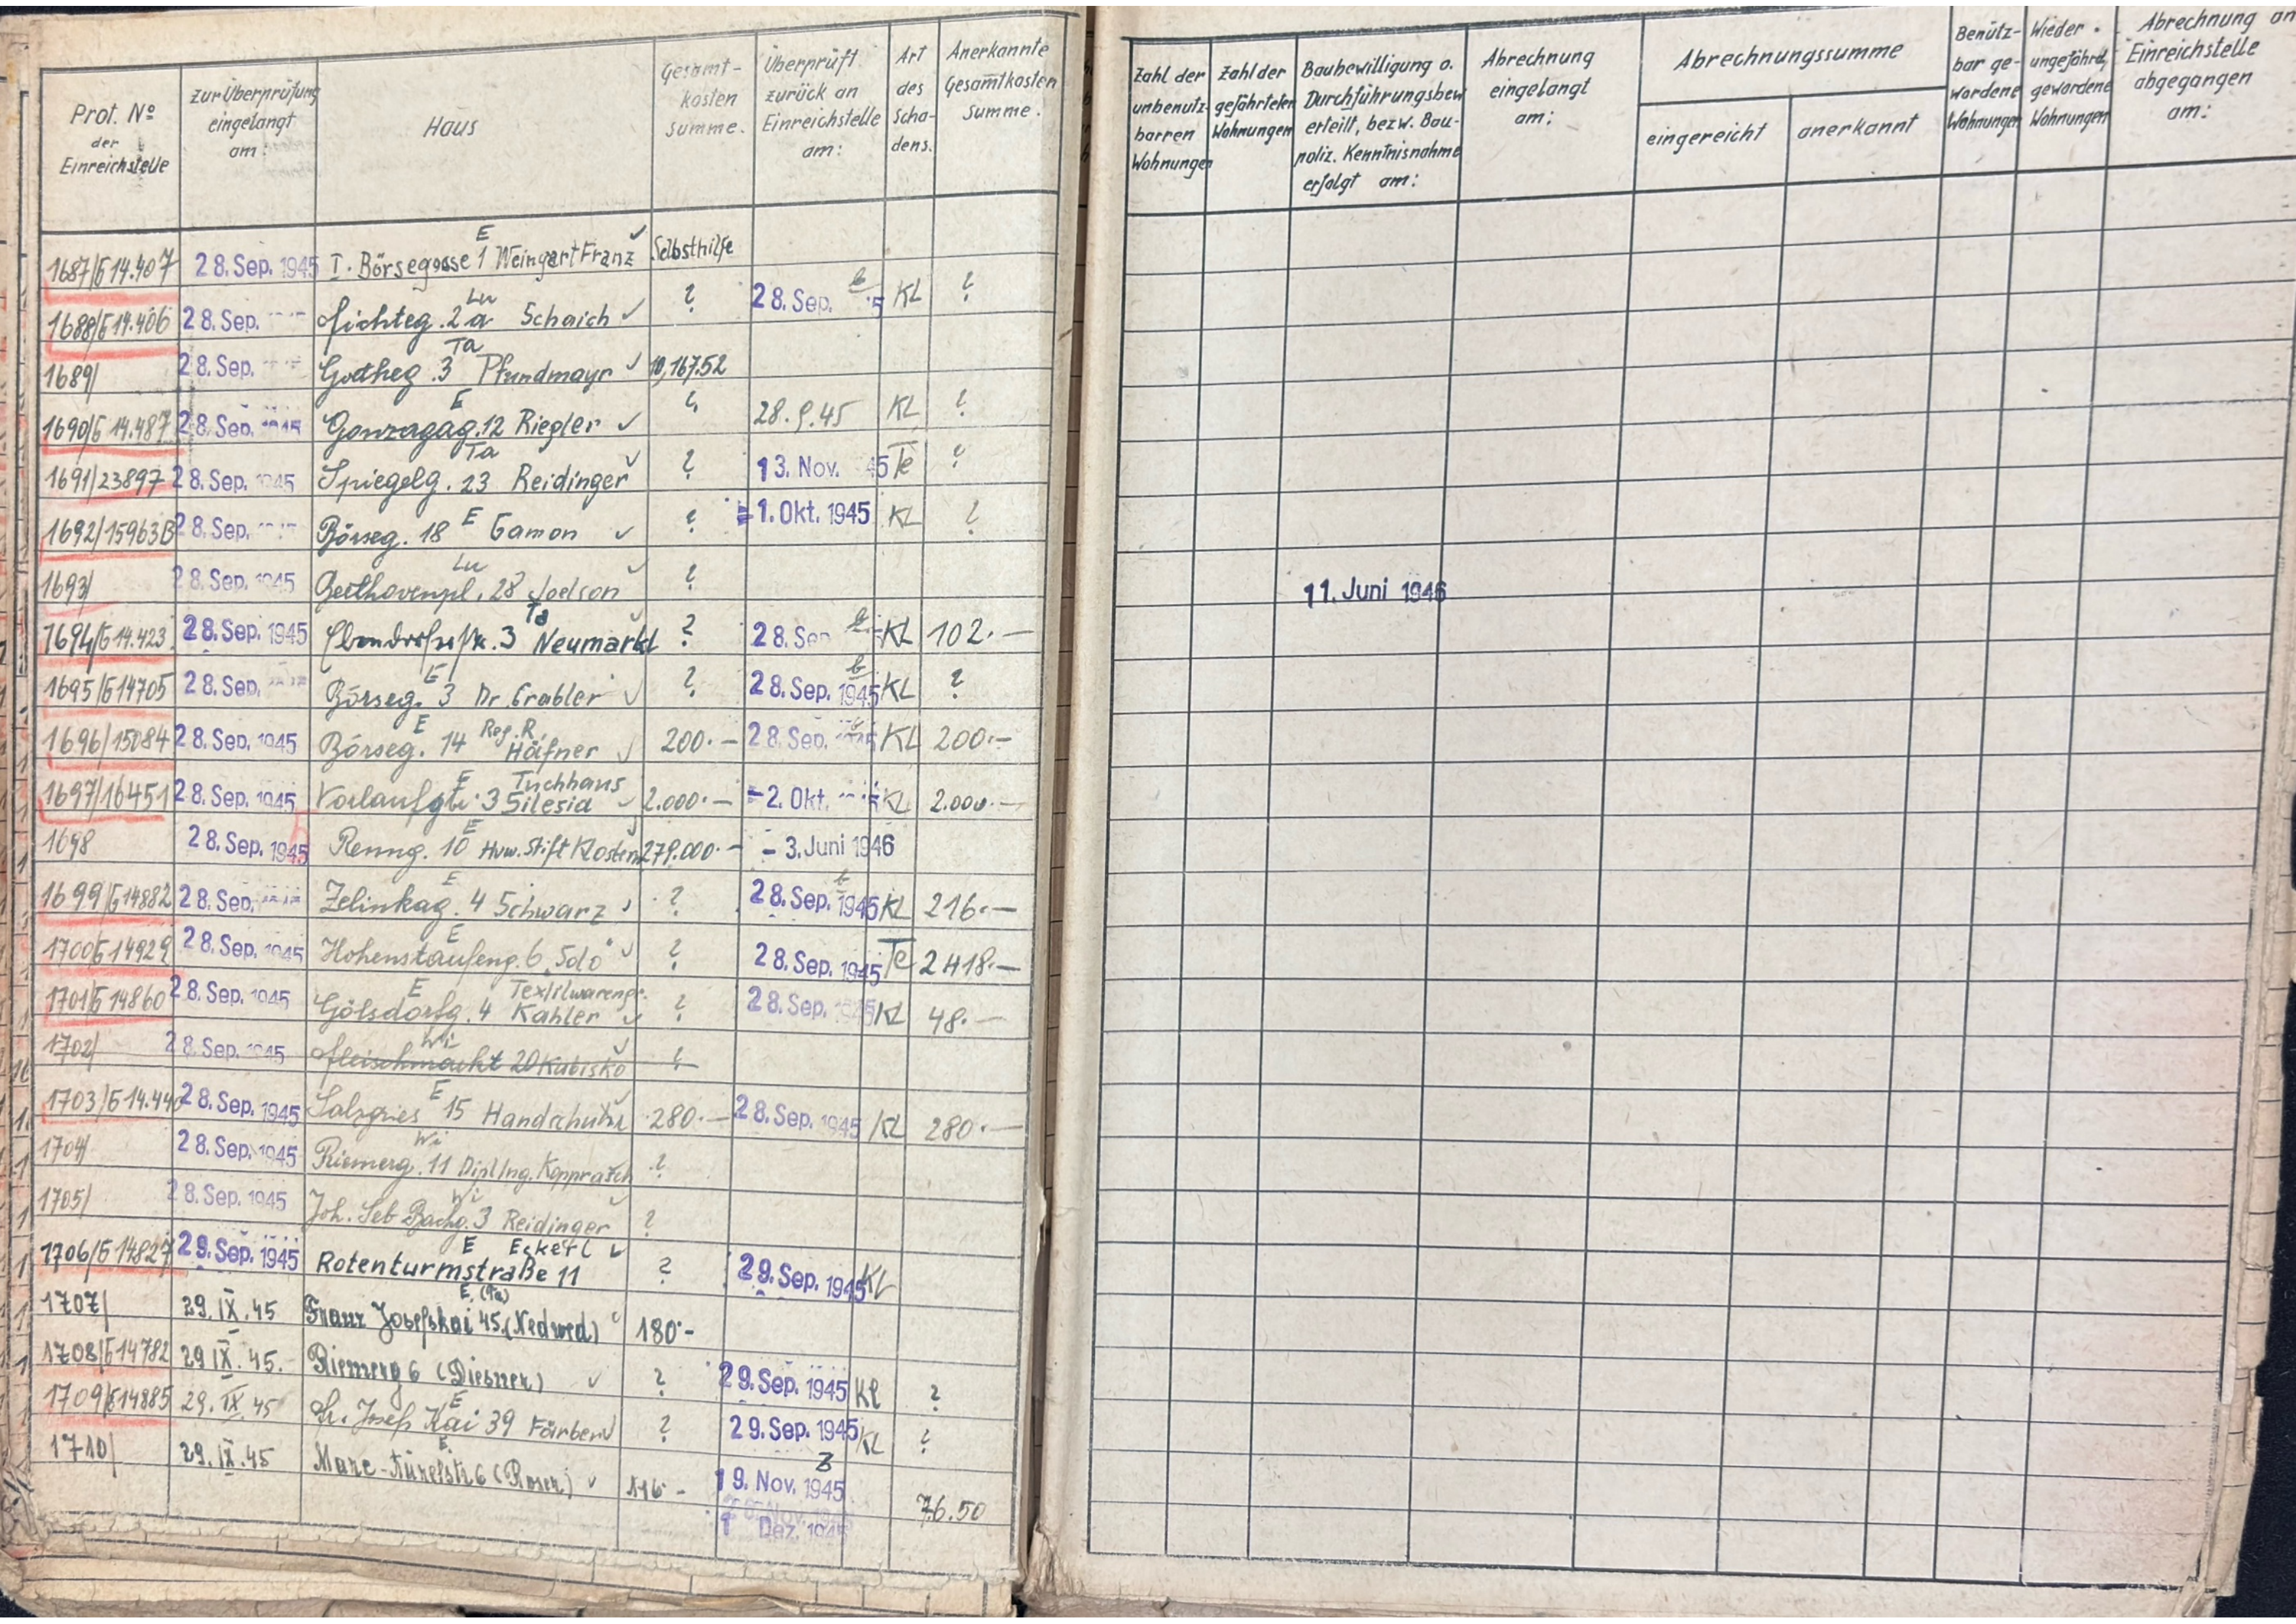 Prot. No der Einreichstelle
zur Überprüfung eingelangt am:
Haus
Gesamt-kosten summe.
Überprüft zurück an Einreichstelle am:
Art des Scha-dens.
Anerkannte Gesamtkosten Summe.
Zahl der unbenutz-barren Wohnungen
Zahl der gefährteten Wohnungen
Baubewilligung o. Durchführungsbew. erteilt, bezw. Bau-poliz. Kenntnisnahme erfolgt am:
Abrechnung eingelangt am:
Abrechnungssumme
eingereicht
anerkannt
Benütz-bar ge-wordene Wohnungen
Wieder ungefährd. gewordene Wohnungen
Abrechnung an Einreichstelle abgegangen am:
1687/G14.407 28. Sep. 1945 I. Börsegasse 1 E Weingart Franz ✓ Selbsthilfe
1688/G14.406 28. Sep. Fichteg. 2a Lu Schaich ✓ ? 28. Sep. KL ?
1689/ 28. Sep. Goetheg. 3 Ta Pfundmayr ✓ 10,167.52
1690/G14.487 28. Sep. 1945 Gonzagag. 12 E Riegler ✓ ? 28.9.45 KL ?
1691/23897 28. Sep. 1945 Spiegelg. 23 Ta Reidinger ✓ ? 13. Nov. 45 Te ?
1692/15963B 28. Sep. Börseg. 18 E Gamon ✓ ? 1. Okt. 1945 KL ?
1693/ 28. Sep. 1945 Beethovenpl. Lu Joelson ✓ ? 11. Juni 1946
1694/G14.423 28. Sep. 1945 Ebendorferstr. 3 Ta Neumarkt ✓ ? 28. Sep KL 102.—
1695/G14705 28. Sep. Börseg. 3 E Dr. Grabler ✓ ? 28. Sep. 1945 KL ?
1696/15084 28. Sep. 1945 Börseg. 14 E Reg. R. Häfner ✓ 200.— 28. Sep. 1945 KL 200.—
1697/16451 28. Sep. 1945 3 E Tuchhaus Silesia ✓ 2.000.— 2. Okt. KL 2.000.—
1698 28. Sep. 1945 Renng. 10 E Stift 279.000.— 3. Juni 1946
1699/G14882 28. Sep. Zelinkag. 4 E Schwarz ✓ ? 28. Sep. 1945 KL 216.—
1700/G14929 28. Sep. 1945 Hohenstaufeng. 6 E ✓ ? 28. Sep. 1945 Te 2418.—
1701/G14860 28. Sep. 1945 Gölsdorfg. 4 E Textilwareng. Kahler ✓ ? 28. Sep. 1945 KL 48.—
1702/ 28. Sep. 1945 Fleischmarkt 20 Wi Kubisko ✓ ?
1703/G14.440 28. Sep. 1945 Salzgries 15 E ✓ 280.— 28. Sep. 1945 KL 280.—
1704/ 28. Sep. 1945 Riemerg. 11 Wi Dipl Ing. ?
1705/ 28. Sep. 1945 Joh. Seb Bachg. 3 Wi Reidinger ✓ ?
1706/G14827 29. Sep. 1945 Rotenturmstraße 11 E Eckerl ✓ ? 29. Sep. 1945 KL
1707/ 29.IX.45 Franz Josefskai 45 E. (Ta) (Nedwed) ✓ 180.-
1708/G14782 29 IX. 45. Riemerg 6 (Diesner) ✓ ? 29. Sep. 1945 Kl ?
1709/G14885 29. IX. 45 Fr. Josef Kai 39 E ✓ ? 29. Sep. 1945 KL ?
1710/ 29.IX.45 Marc-Aurelstr. 6 E. (Roser) ✓ 116.- 19. Nov. 1945 76.50
1 Dez. 1945